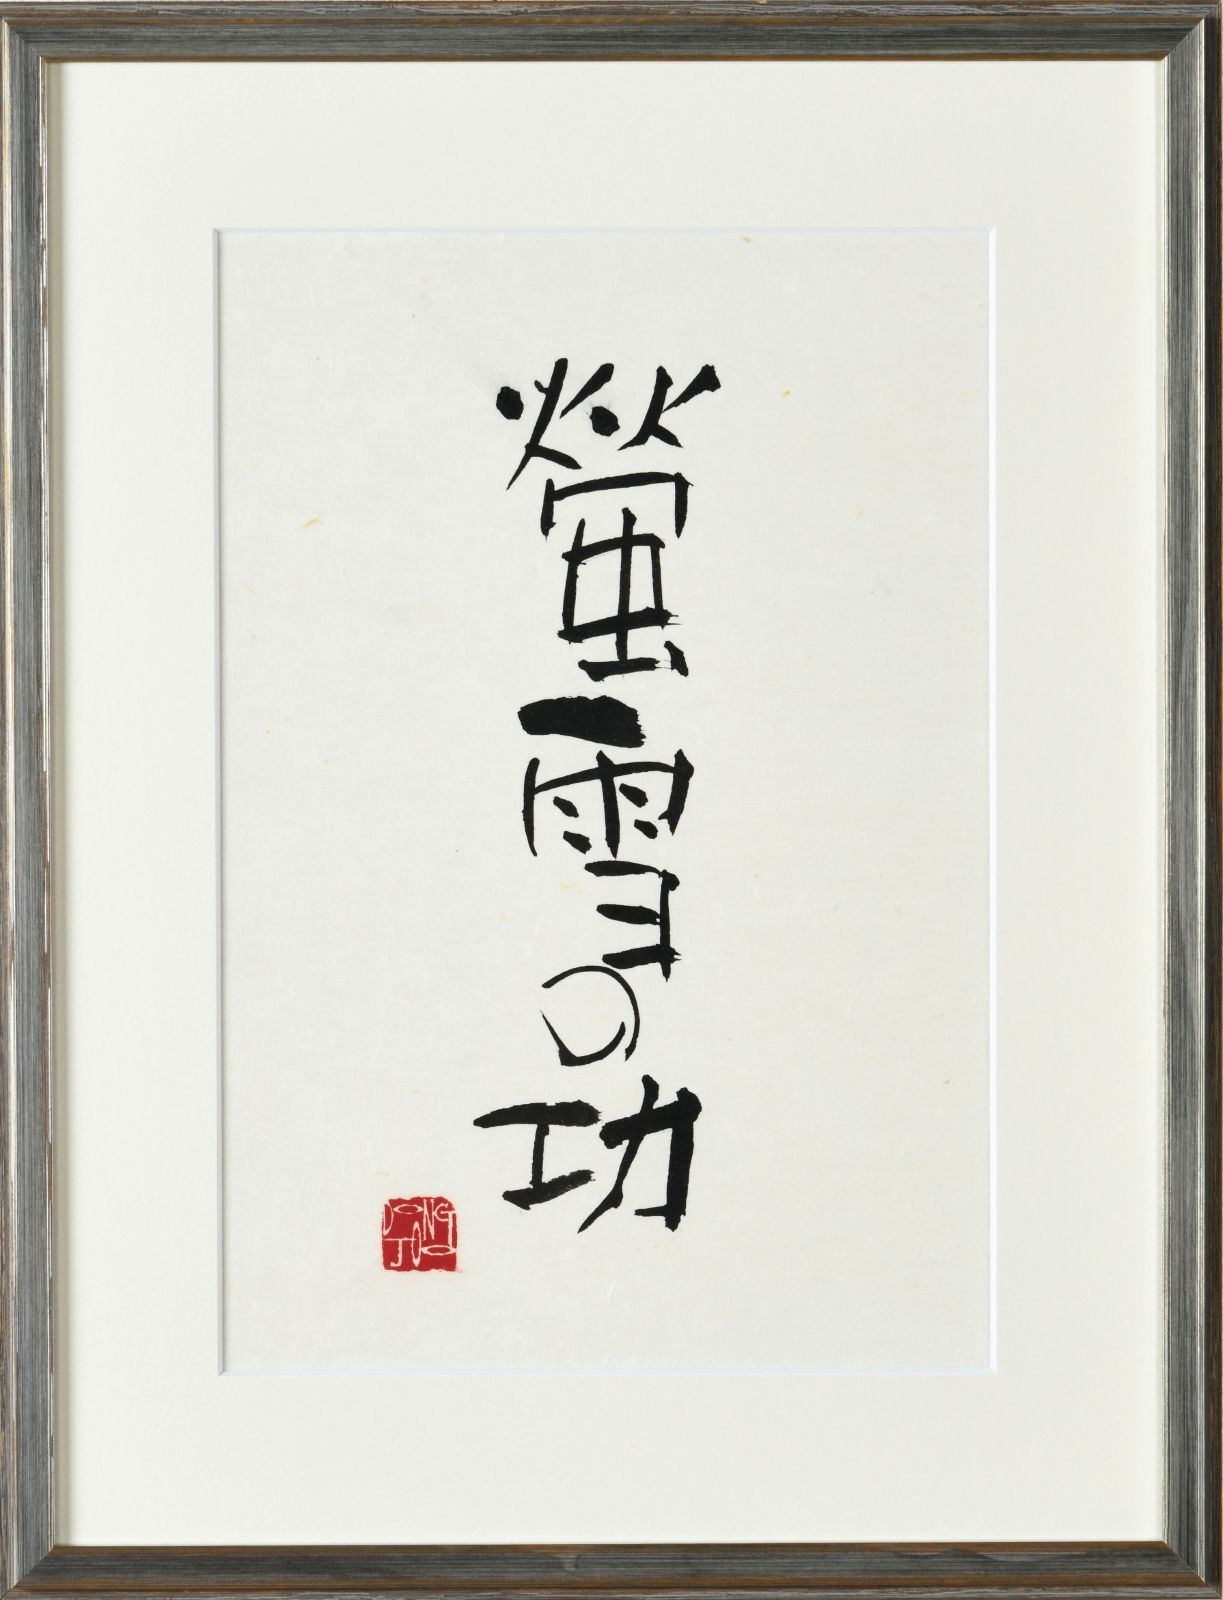 螢雪の功
DONG
JOO